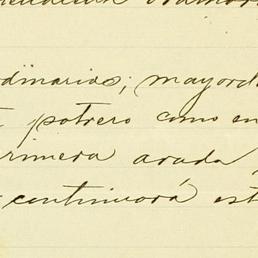 ordinarios; mayord
potrero como en
primera arada,
continuará est